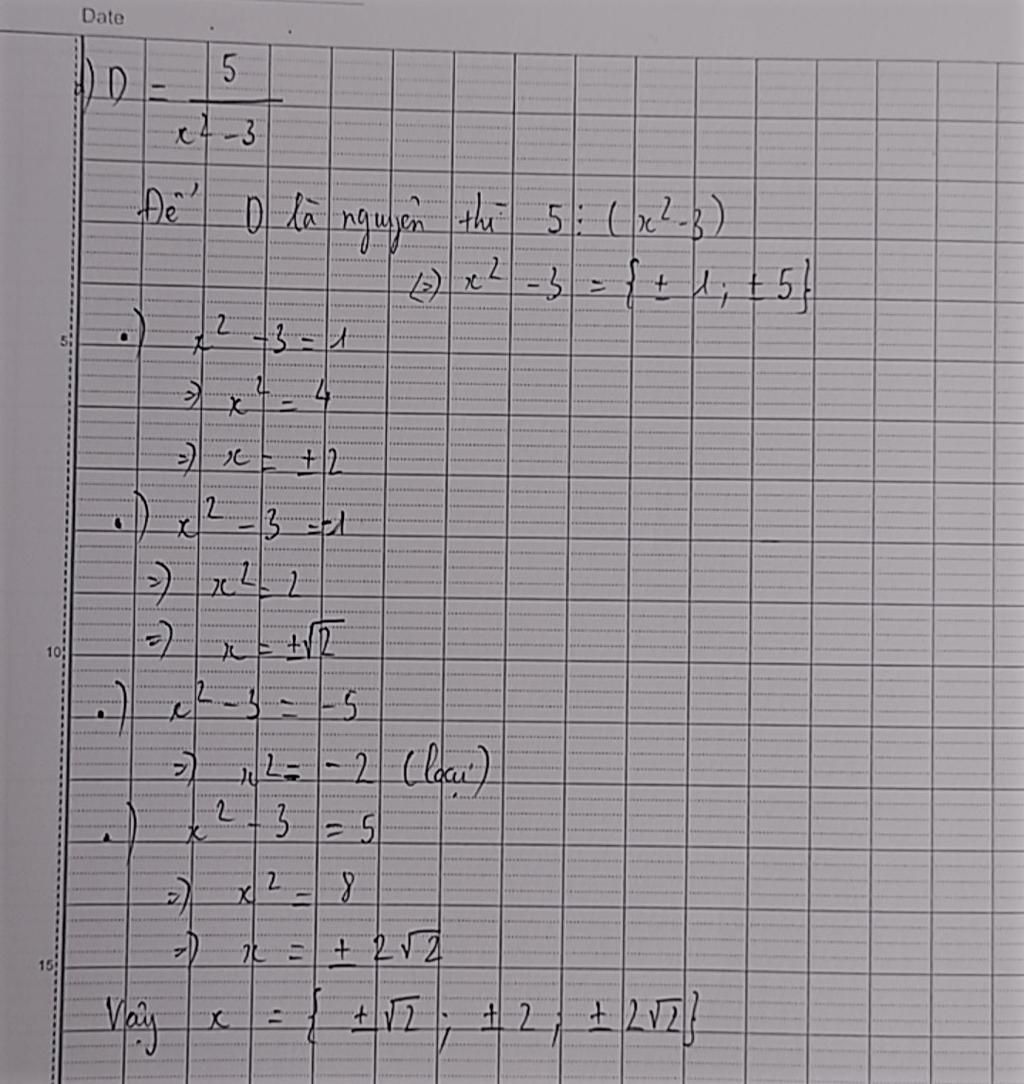 Date
) D = 5 / (x² - 3)
Để D là nguyên thì 5 ⋮ (x² - 3)
(=) x² - 3 = { ± 1 ; ± 5}
5
.) x² - 3 = 1
=) x² = 4
=) x = ± 2
.) x² - 3 = -1
=) x² = 2
=) x = ±√2
10
.) x² - 3 = -5
=) x² = - 2 (loại)
.) x² - 3 = 5
=) x² = 8
=) x = ± 2√2
15
Vậy x = { ± √2 ; ± 2 ; ± 2√2}